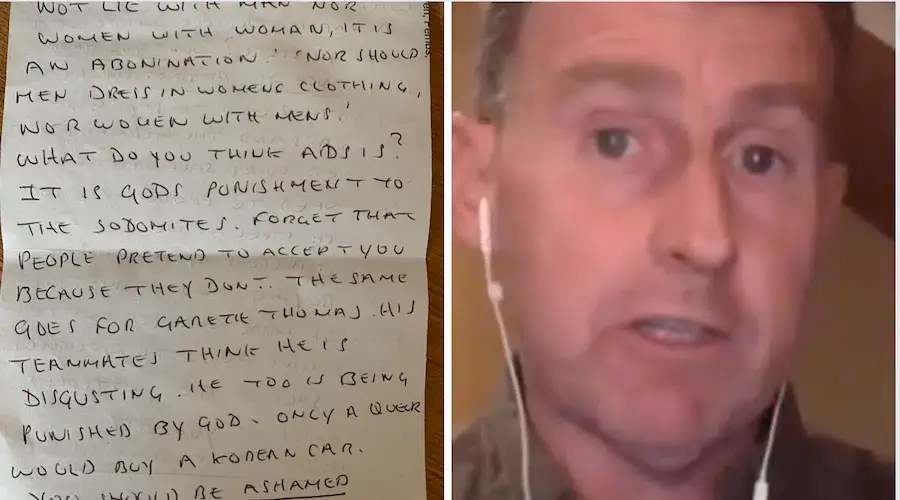 NOT LIE WITH MAN NOR
WOMEN WITH WOMAN, IT IS
AN ABONINATION.' 'NOR SHOULD
MEN DRESS IN WOMENS CLOTHING,
NOR WOMEN WITH MENS.'
WHAT DO YOU THINK ADS IS?
IT IS GODS PUNISHMENT TO
THE SODOMITES. FORGET THAT
PEOPLE PRETEND TO ACCEPT YOU
BECAUSE THEY DON'T. THE SAME
GOES FOR GARETH THOMAS. HIS
TEAMMATES THINK HE IS
DISGUSTING. HE TOO IS BEING
PUNISHED BY GOD. ONLY A QUEER
WOULD BUY A KOREAN CAR.
YOU SHOULD BE ASHAMED